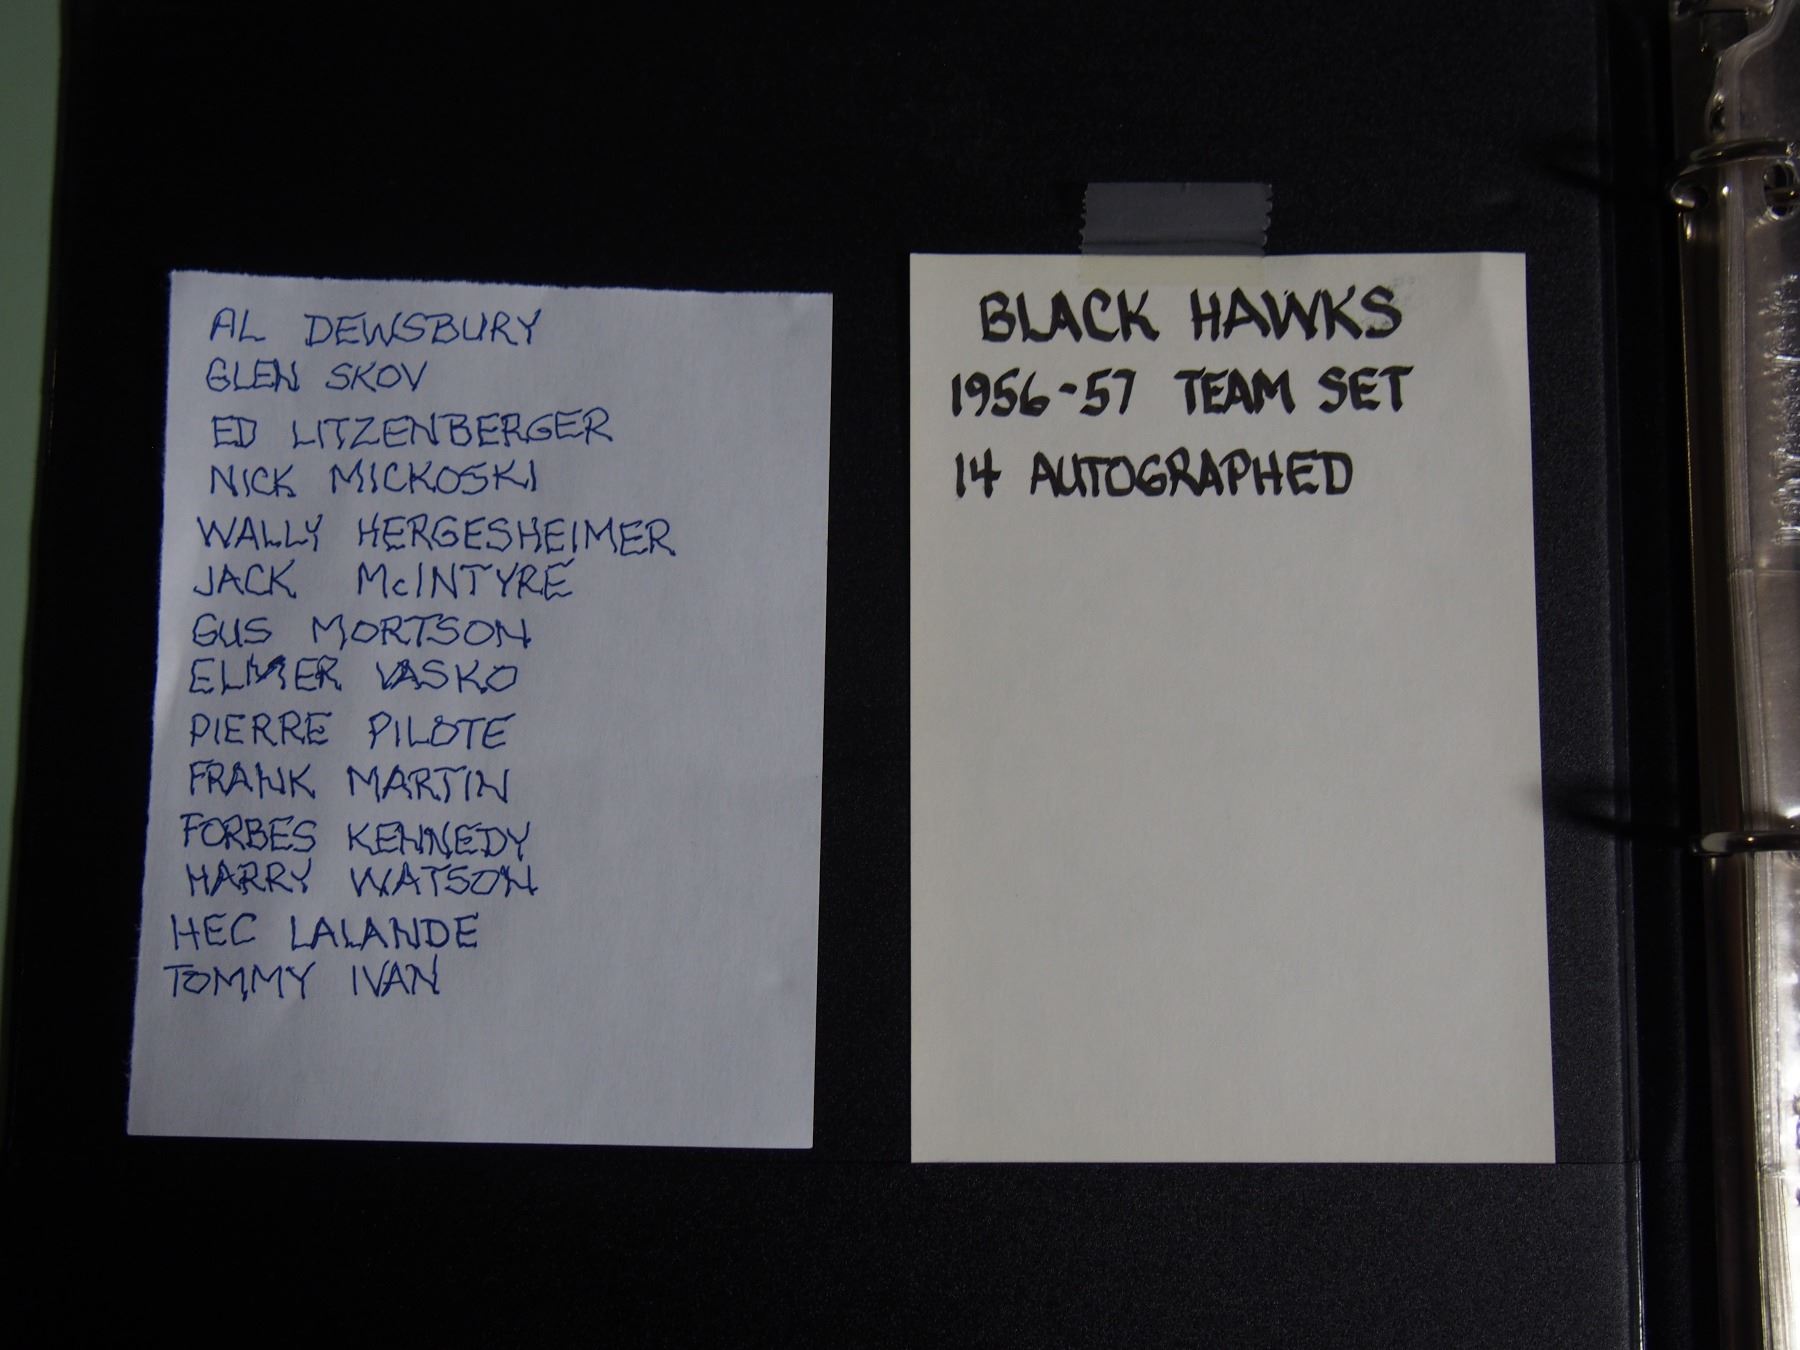 AL DEWSBURY
GLEN SKOV
ED LITZENBERGER
NICK MICKOSKI
WALLY HERGESHEIMER
JACK McINTYRE
GUS MORTSON
ELMER VASKO
PIERRE PILOTE
FRANK MARTIN
FORBES KENNEDY
HARRY WATSON
HEC LALANDE
TOMMY IVAN
BLACK HAWKS
1956-57 TEAM SET
14 AUTOGRAPHED